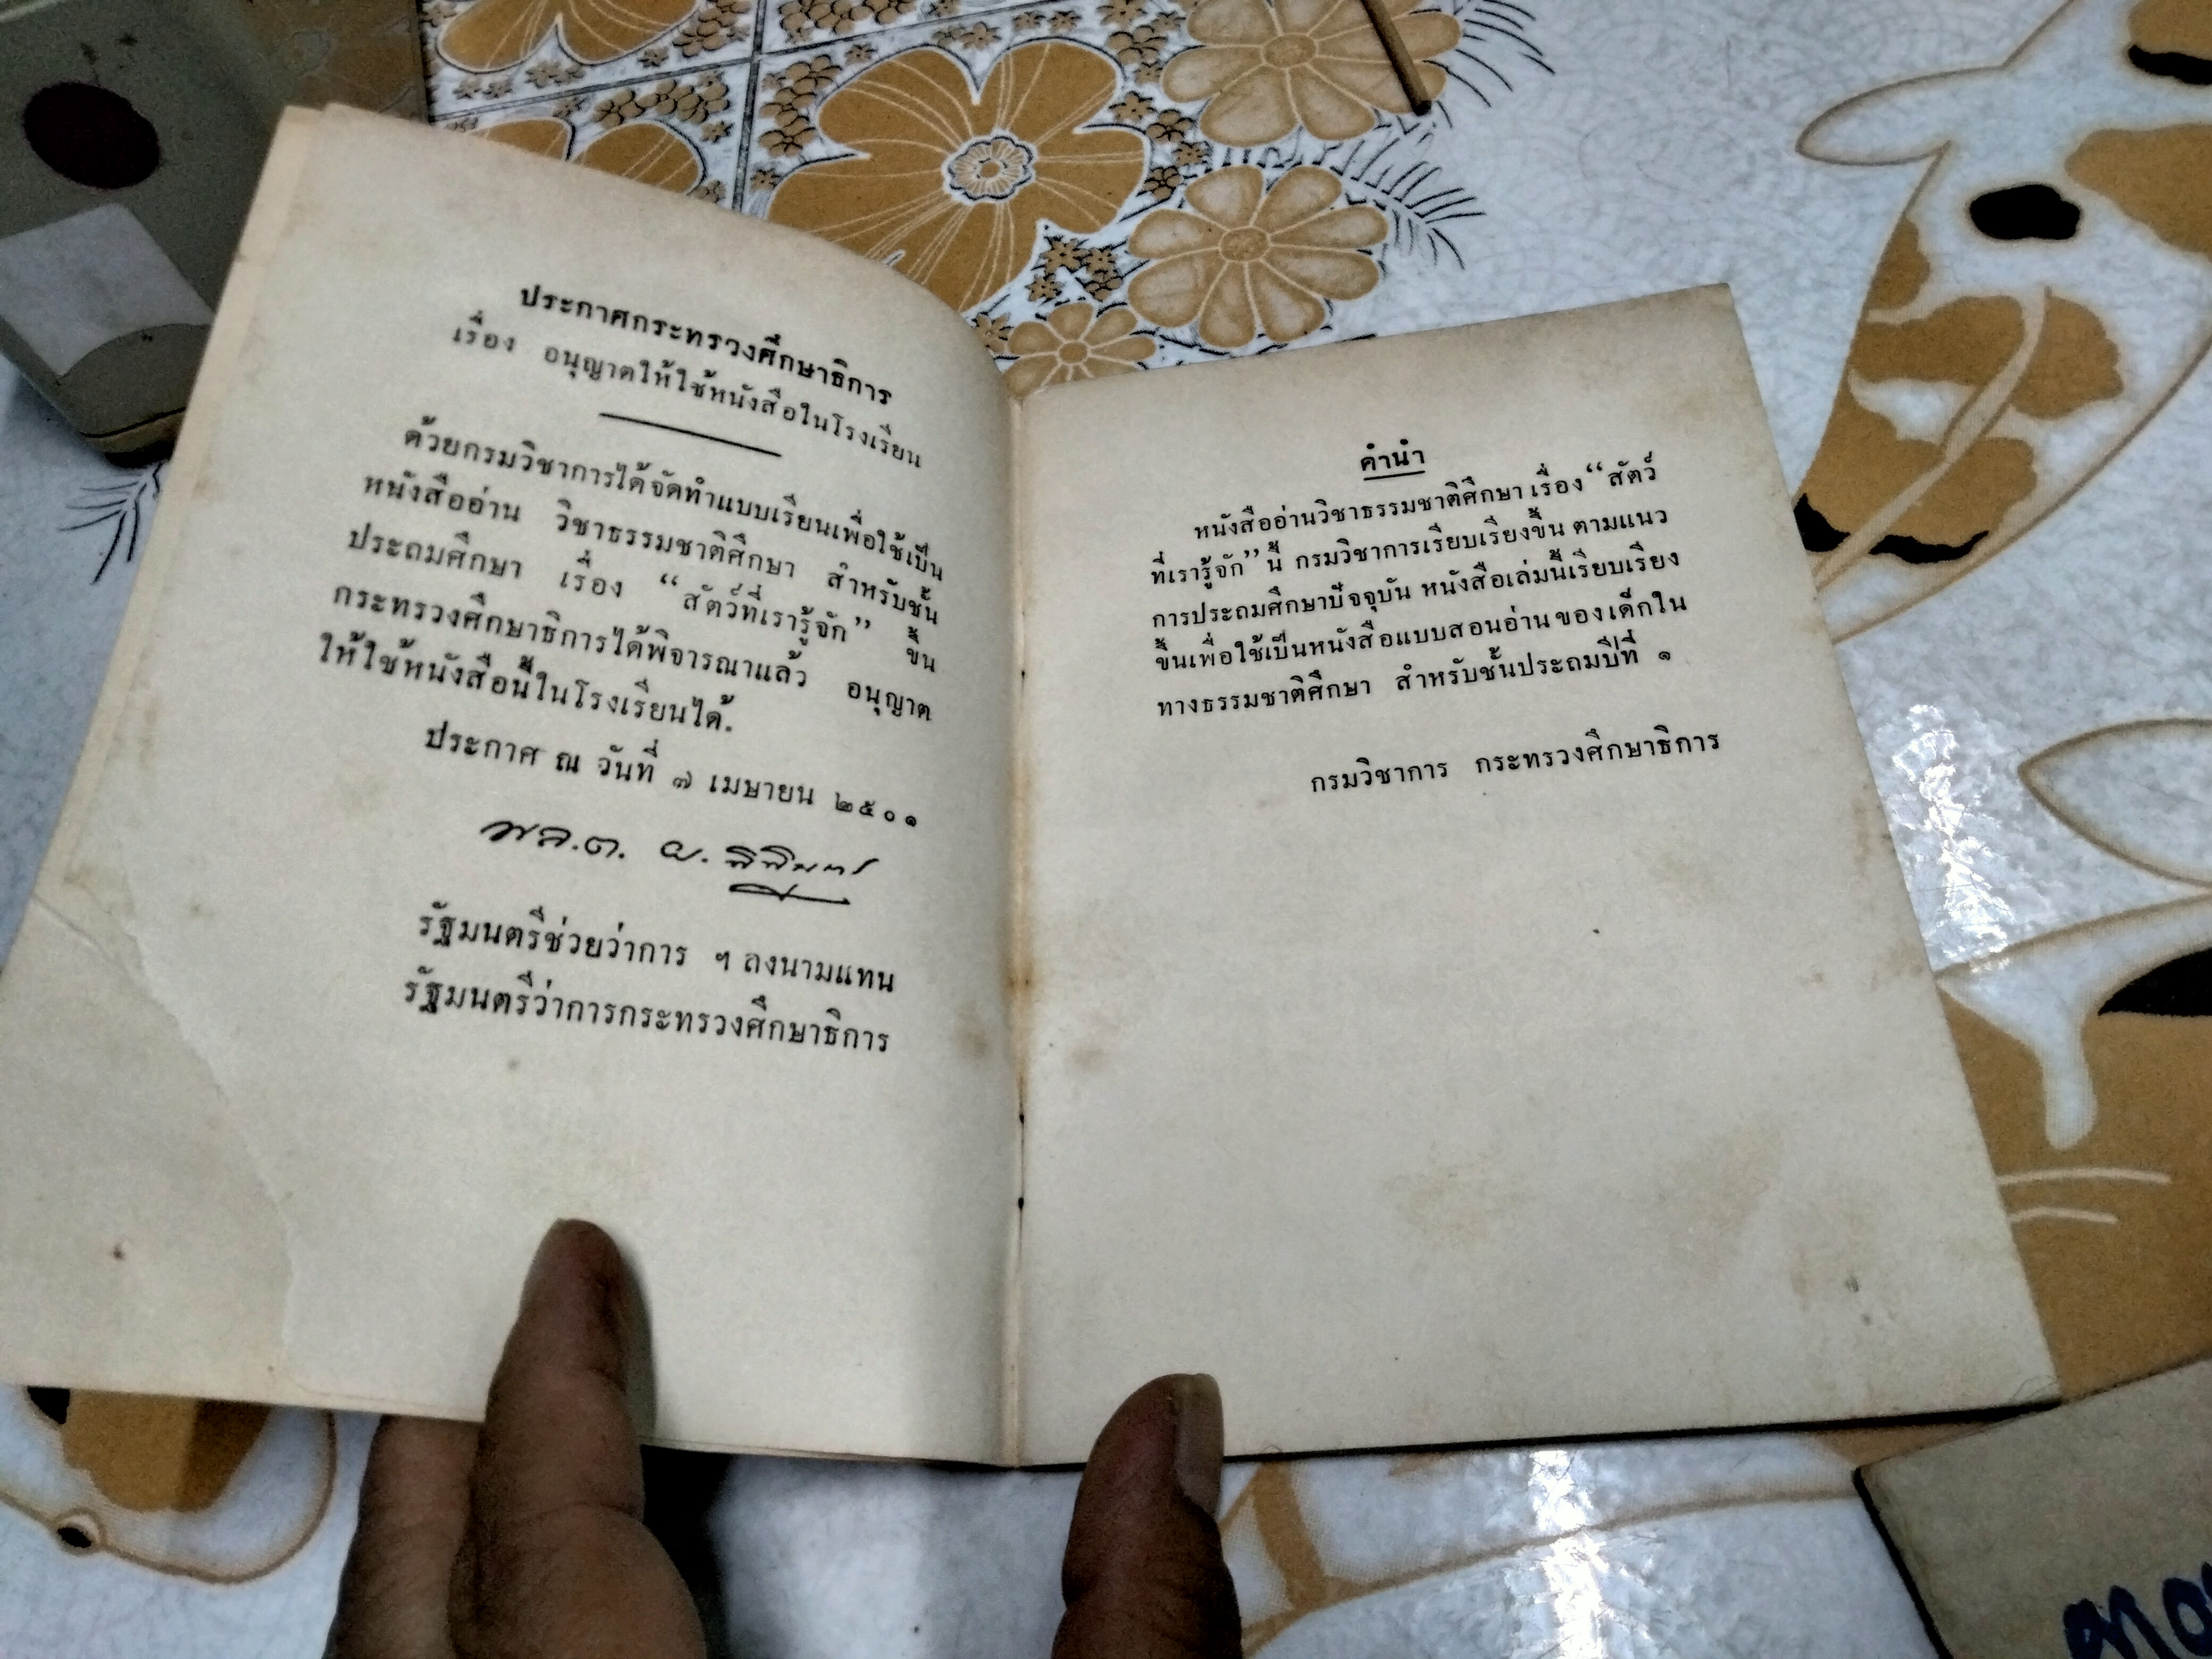 ประกาศกระทรวงศึกษาธิการ
เรื่อง อนุญาตให้ใช้หนังสือในโรงเรียน
ด้วยกรมวิชาการได้จัดทำแบบเรียนเพื่อใช้เป็น
หนังสืออ่าน วิชาธรรมชาติศึกษา สำหรับชั้น
ประถมศึกษา เรื่อง “สัตว์ที่เรารู้จัก” ขึ้น
กระทรวงศึกษาธิการได้พิจารณาแล้ว อนุญาต
ให้ใช้หนังสือนี้ในโรงเรียนได้.
ประกาศ ณ วันที่ ๗ เมษายน ๒๕๐๑
พล.ต.
รัฐมนตรีช่วยว่าการ ฯ ลงนามแทน
รัฐมนตรีว่าการกระทรวงศึกษาธิการ
คำนำ
หนังสืออ่านวิชาธรรมชาติศึกษา เรื่อง “สัตว์
ที่เรารู้จัก” นี้ กรมวิชาการเรียบเรียงขึ้น ตามแนว
การประถมศึกษาปัจจุบัน หนังสือเล่มนี้เรียบเรียง
ขึ้นเพื่อใช้เป็นหนังสือแบบสอนอ่าน ของ เด็กใน
ทางธรรมชาติศึกษา สำหรับชั้นประถมปีที่ ๑
กรมวิชาการ กระทรวงศึกษาธิการ